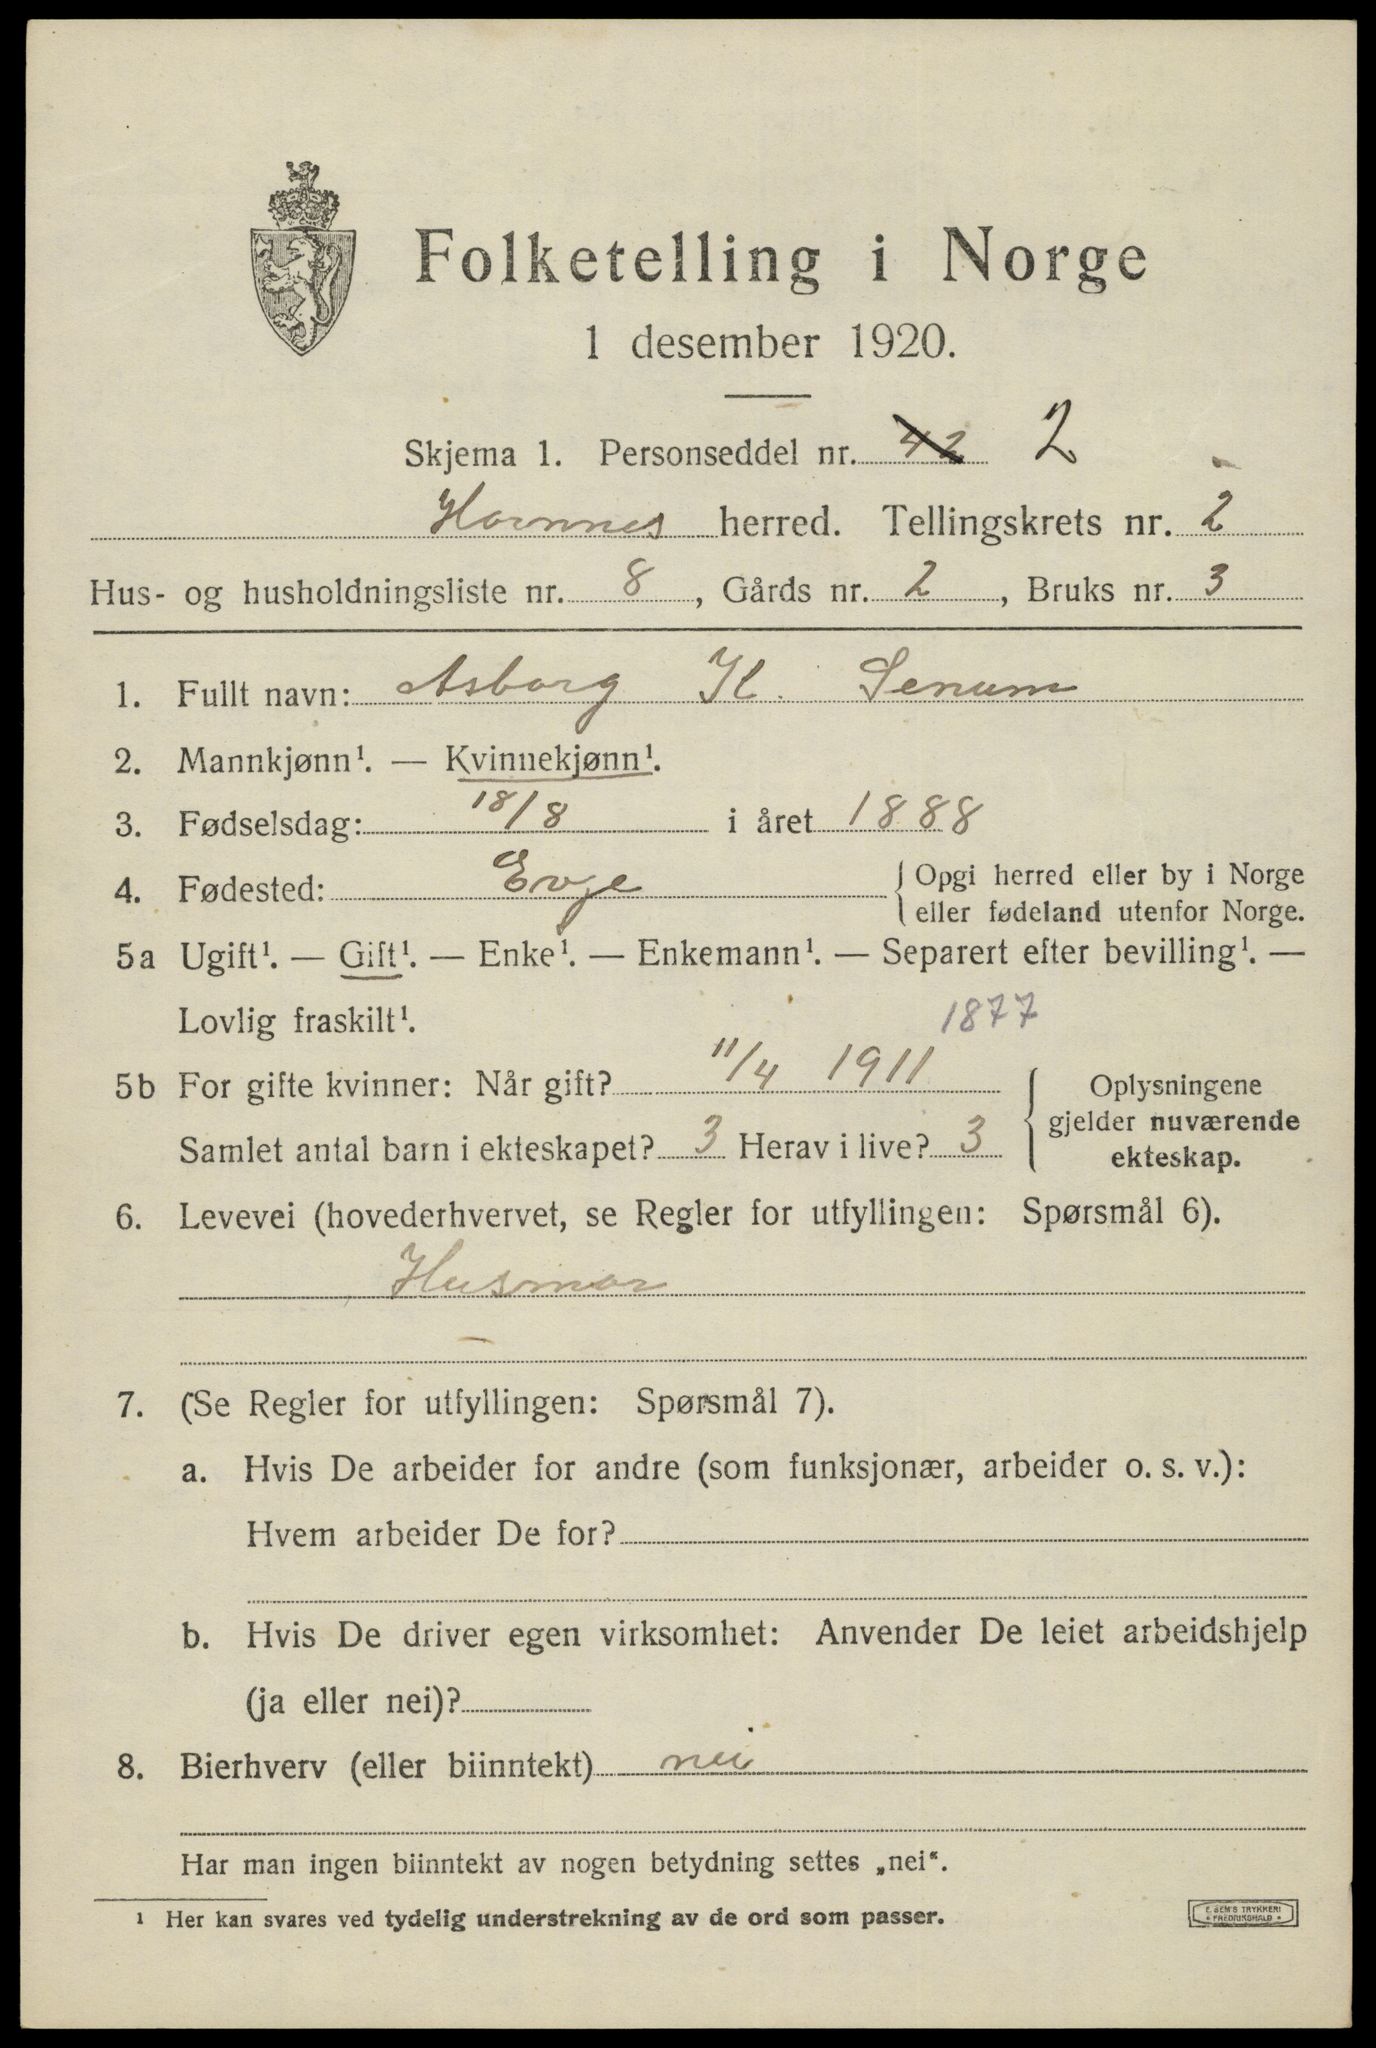 Folketelling i Norge
1 desember 1920.
Skjema 1. Personseddel nr. 42 2
Hornnes herred. Tellingskrets nr. 2
Hus- og husholdningsliste nr. 8, Gårds nr. 2, Bruks nr. 3
1. Fullt navn: Asborg K. Senum
2. Mannkjønn¹. — Kvinnekjønn¹.
3. Fødselsdag: 18/8 i året 1888
4. Fødested: Evje { Opgi herred eller by i Norge
eller fødeland utenfor Norge.
5a Ugift¹. — Gift¹. — Enke¹. — Enkemann¹. — Separert efter bevilling¹. —
Lovlig fraskilt¹. 1877
5b For gifte kvinner: Når gift? 11/4 1911 { Oplysningene
gjelder nuværende
Samlet antal barn i ekteskapet? 3 Herav i live? 3 ekteskap.
6. Levevei (hovederhvervet, se Regler for utfyllingen: Spørsmål 6).
Husmor
7. (Se Regler for utfyllingen: Spørsmål 7).
a. Hvis De arbeider for andre (som funksjonær, arbeider o. s. v.):
Hvem arbeider De for?
b. Hvis De driver egen virksomhet: Anvender De leiet arbeidshjelp
(ja eller nei)?
8. Bierhverv (eller biinntekt) nei
Har man ingen biinntekt av nogen betydning settes „nei“.
¹ Her kan svares ved tydelig understrekning av de ord som passer.
E. SEM'S TRYKKERI
• FREDRIKSHALD •